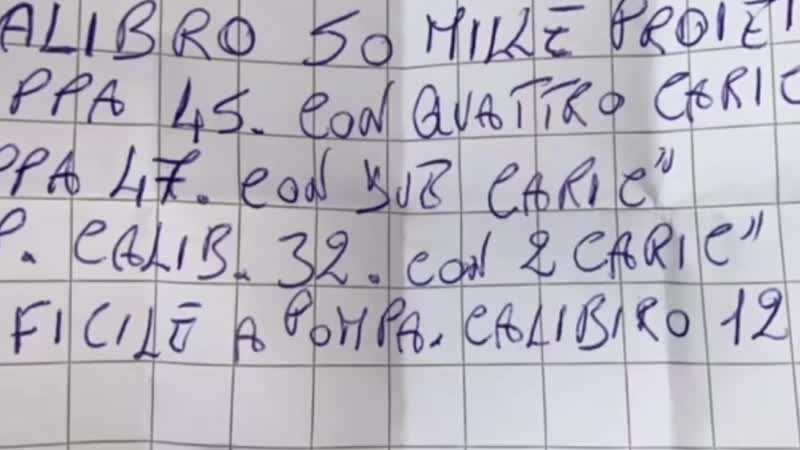 ALIBRO 50 MILLE PROIET
PPA 45. CON QUATTRO CARIC
PPA 47. CON DUE CARIC"
P. CALIB. 32. CON 2 CARIC"
FICILE A POMPA. CALIBIRO 12